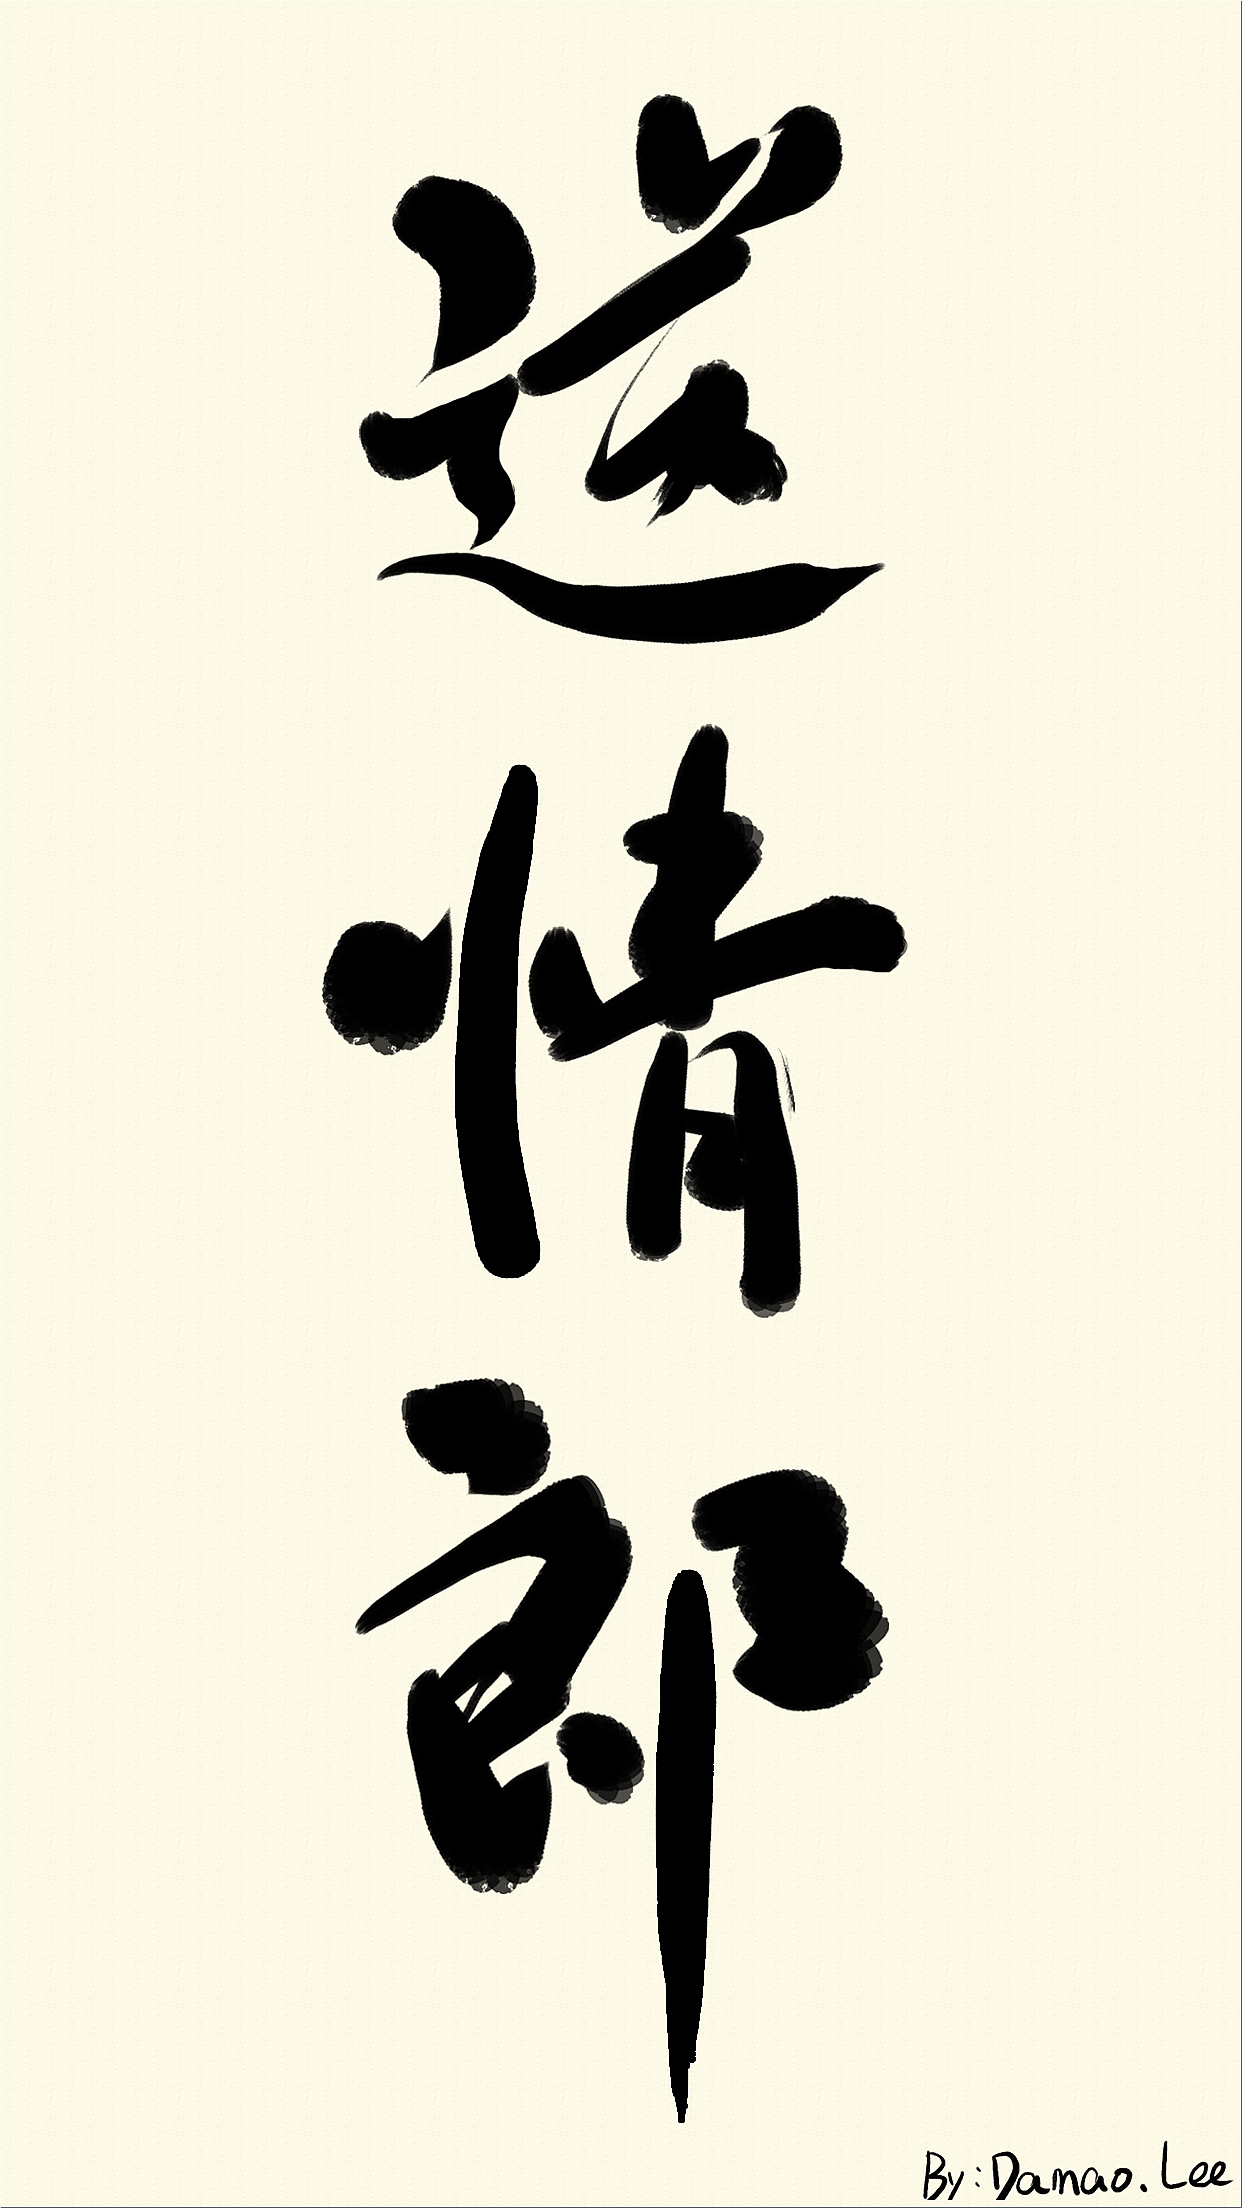 送情郎
By: Damao. Lee